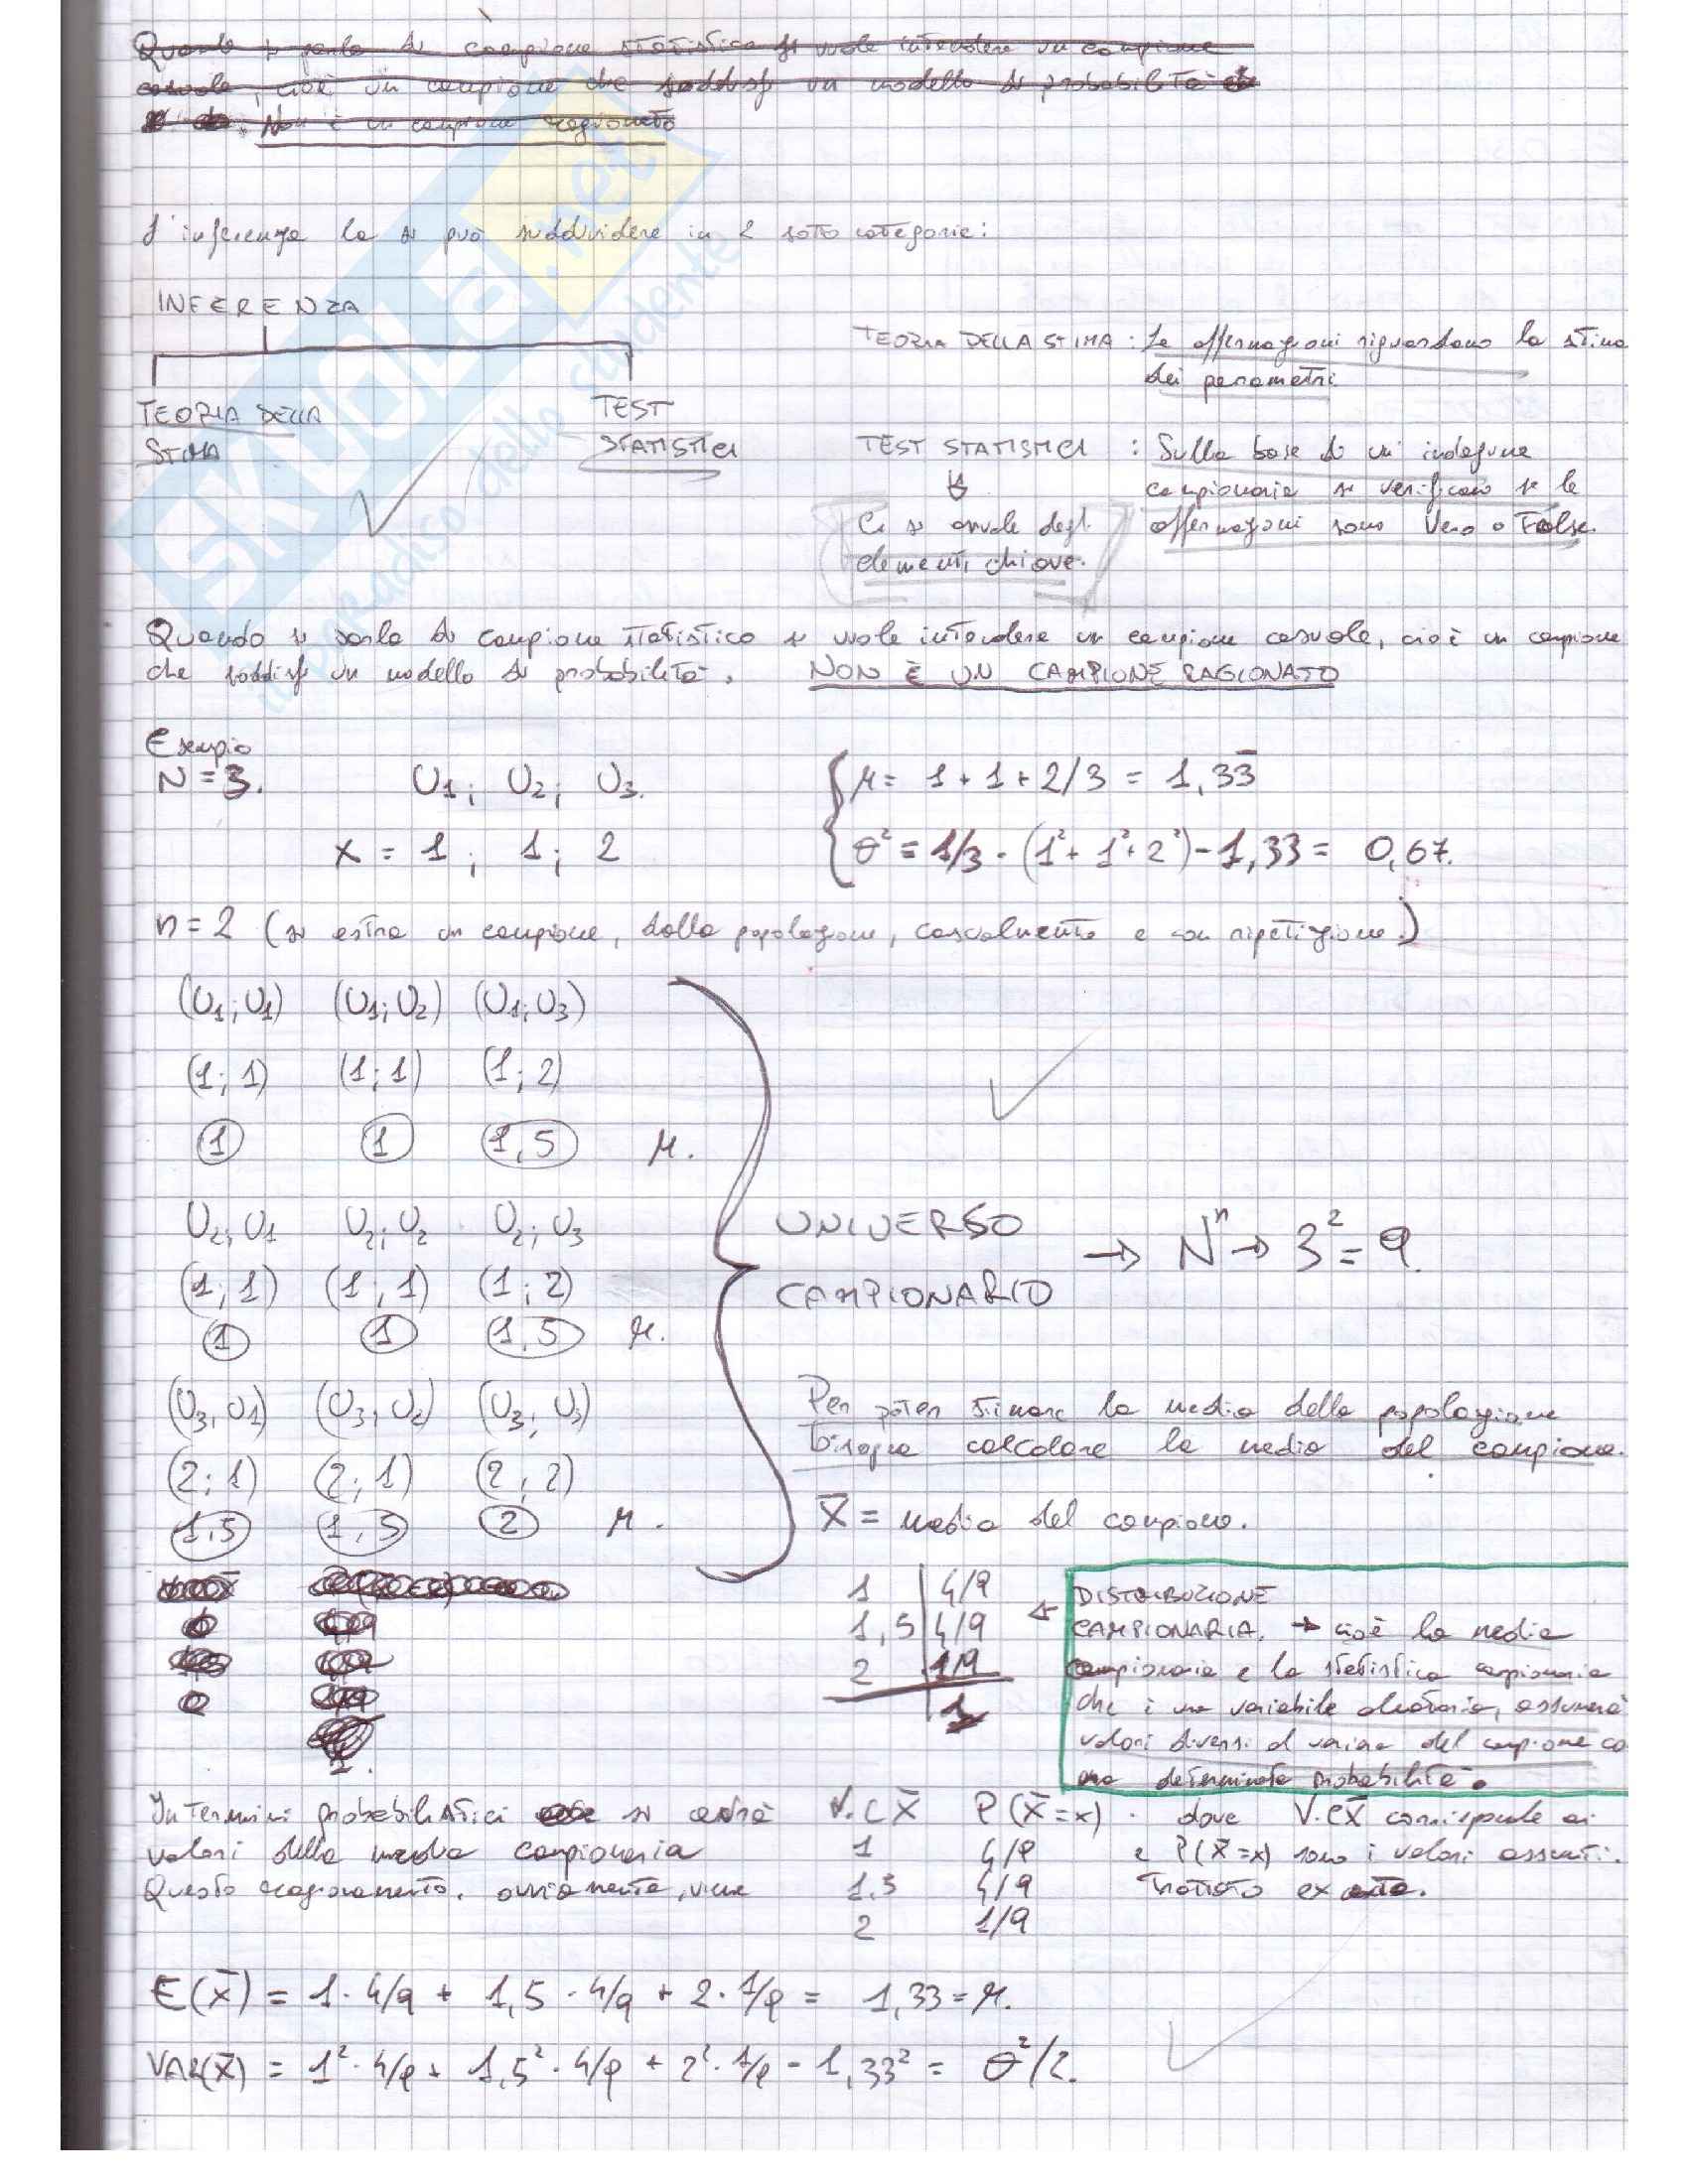 Quando si parla di campione statistico si vuole intendere un campione
casuale, cioè un campione che soddisf un modello di probabilità
Non è un campione ragionato
L'inferenza la si può suddividere in 2 sotto categorie:
INFERENZA
TEORIA DELLA STIMA
TEST STATISTICI
TEORIA DELLA STIMA : Le affermazioni riguardano la stima
dei parametri
TEST STATISTICI : Sulla base di un' indagine
campionaria si verificano se le
affermazioni sono Vero o False.
Ci si avvale degli
elementi chiave.
Quando si parla di campione statistico si vuole intendere un campione casuale, cioè un campione
che soddisf un modello di probabilità. NON È UN CAMPIONE RAGIONATO
Esempio
N = 3. U1; U2; U3. μ = 1 + 1 + 2/3 = 1,33
x = 1; 1; 2 σ² = 1/3 · (1² + 1² + 2²) - 1,33 = 0,67.
n = 2 (si estrae un campione, dalla popolazione, casualmente e con ripetizione.)
(U1; U1) (U1; U2) (U1; U3)
(1; 1) (1; 1) (1; 2)
1 1 1,5 μ.
U2; U1 U2; U2 U2; U3
(1; 1) (1; 1) (1; 2)
1 1 1,5 μ.
UNIVERSO
CAMPIONARIO → Nⁿ → 3² = 9.
(U3, U1) (U3, U2) (U3, U3)
(2; 1) (2; 1) (2; 2)
1,5 1,5 2 μ.
Per poter stimare la media della popolazione
bisogna calcolare la media del campione.
X̄ = media del campione.
1 | 4/9
1,5 | 4/9
2 | 1/9
1
DISTRIBUZIONE
CAMPIONARIA. → cioè la media
campionaria e la statistica campionaria
che è una variabile aleatoria, assumerà
valori diversi al variare del campione co
una determinata probabilità.
In termini probabilistici si avrà V.C X̄ P(X̄=x) . dove V.C X̄ corrisponde ai
valori della media campionaria 1 4/9 e P(X̄=x) sono i valori assunti.
Questo ragionamento, ovviamente, viene 1,5 4/9 trattato ex ante.
2 1/9
E(X̄) = 1 · 4/9 + 1,5 · 4/9 + 2 · 1/9 = 1,33 = μ.
VAR(X̄) = 1² · 4/9 + 1,5² · 4/9 + 2² · 1/9 - 1,33² = σ²/2.
SKUOLA.net
il paradiso dello studente